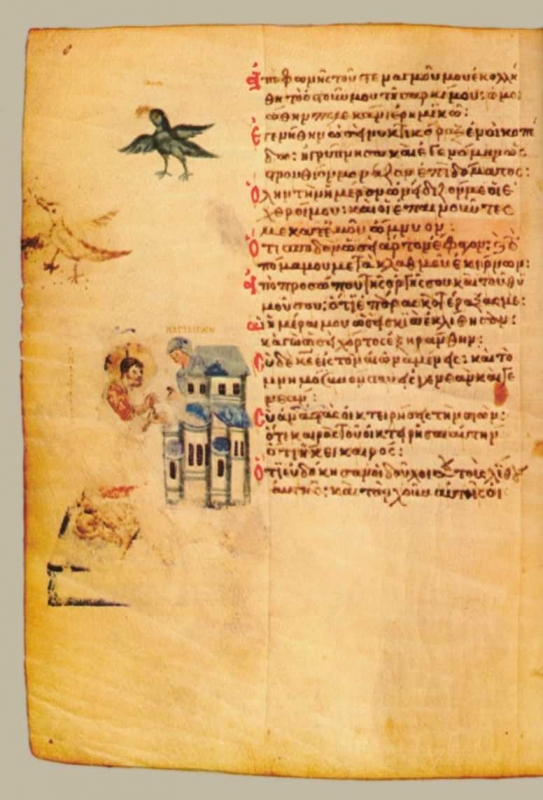 ἀπὸ φωνῆς τοῦ στεναγμοῦ μου ἐκολλή
θη τὸ ὀστοῦν μου τῇ σαρκί μου: ὡμοι
ώθην πελεκᾶνι ἐρημικῶ:
Ἐγενήθην ὡσεὶ νυκτικόραξ ἐν οἰκοπέ
δω: ἠγρύπνησα καὶ ἐγενόμην ὡς
στρουθίον μονάζον ἐπὶ δώματος:
Ὅλην τὴν ἡμέραν ὠνείδιζόν με οἱ ἐ
χθροί μου: καὶ οἱ ἐπαινοῦντές
με κατ' ἐμοῦ ὤμνυον:
Ὅτι σποδὸν ὡσεὶ ἄρτον ἔφαγον: καὶ τὸ
πόμα μου μετὰ κλαυθμοῦ ἐκίρνων:
ἀπὸ προσώπου τῆς ὀργῆς σου καὶ τοῦ θυ
μοῦ σου: ὅτι ἐπάρας κατέραξάς με:
αἱ ἡμέραι μου ὡσεὶ σκιὰ ἐκλίθησαν:
κἀγὼ ὡσεὶ χόρτος ἐξηράνθην:
Σὺ δὲ κε εἰς τὸν αἰῶνα μένεις: καὶ τὸ
μνημόσυνόν σου εἰς γενεὰν καὶ γε
νεάν:
Σὺ ἀναστὰς οἰκτειρήσεις τὴν σιών:
ὅτι καιρὸς τοῦ οἰκτειρῆσαι αὐτήν
ὅτι ἥκει καιρός:
Ὅτι εὐδόκησαν οἱ δοῦλοί σου τοὺς λίθους
αὐτῆς: καὶ τὸν χοῦν αὐτῆς οἰ